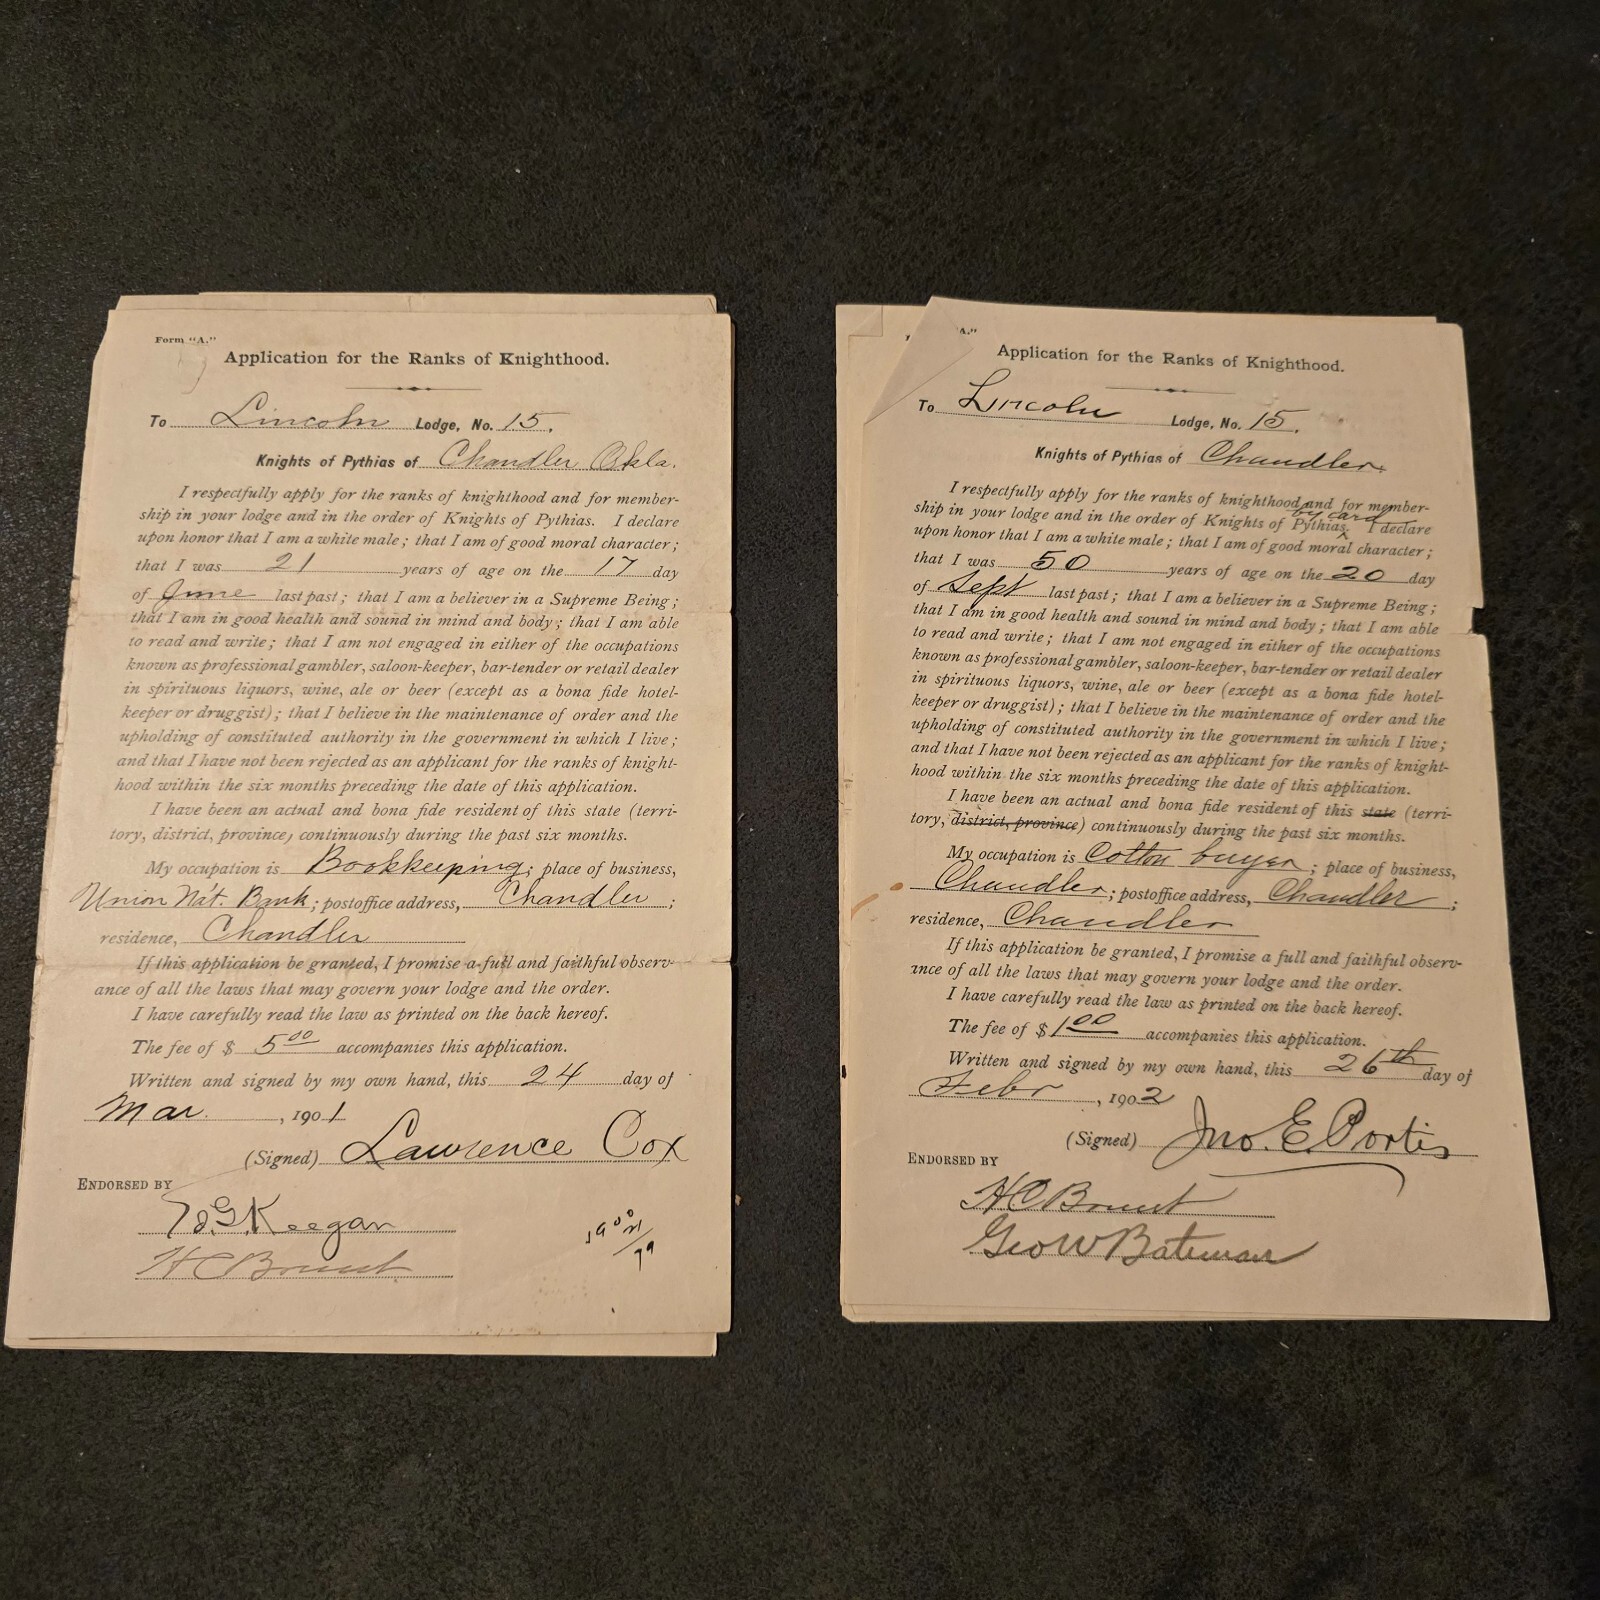 Form "A."
Application for the Ranks of Knighthood.
To Lincoln Lodge, No. 15.
Knights of Pythias of Chandler Okla.
I respectfully apply for the ranks of knighthood and for member-
ship in your lodge and in the order of Knights of Pythias. I declare
upon honor that I am a white male; that I am of good moral character;
that I was 21 years of age on the 17 day
of June last past; that I am a believer in a Supreme Being;
that I am in good health and sound in mind and body; that I am able
to read and write; that I am not engaged in either of the occupations
known as professional gambler, saloon-keeper, bar-tender or retail dealer
in spirituous liquors, wine, ale or beer (except as a bona fide hotel-
keeper or druggist); that I believe in the maintenance of order and the
upholding of constituted authority in the government in which I live;
and that I have not been rejected as an applicant for the ranks of knight-
hood within the six months preceding the date of this application.
I have been an actual and bona fide resident of this state (terri-
tory, district, province) continuously during the past six months.
My occupation is Bookkeeping; place of business,
Union Nat. Bank; postoffice address, Chandler;
residence, Chandler
If this application be granted, I promise a full and faithful observ-
ance of all the laws that may govern your lodge and the order.
I have carefully read the law as printed on the back hereof.
The fee of $ 5 00 accompanies this application.
Written and signed by my own hand, this 24 day of
Mar. , 1901
(Signed) Lawrence Cox
ENDORSED BY
Keegan
H C Brunt
A."
Application for the Ranks of Knighthood.
To Lincoln Lodge, No. 15.
Knights of Pythias of Chandler.
I respectfully apply for the ranks of knighthood and for member-
by card
ship in your lodge and in the order of Knights of Pythias. I declare
upon honor that I am a white male; that I am of good moral character;
that I was 50 years of age on the 20 day
of Sept last past; that I am a believer in a Supreme Being;
that I am in good health and sound in mind and body; that I am able
to read and write; that I am not engaged in either of the occupations
known as professional gambler, saloon-keeper, bar-tender or retail dealer
in spirituous liquors, wine, ale or beer (except as a bona fide hotel-
keeper or druggist); that I believe in the maintenance of order and the
upholding of constituted authority in the government in which I live;
and that I have not been rejected as an applicant for the ranks of knight-
hood within the six months preceding the date of this application.
I have been an actual and bona fide resident of this state (terri-
tory, district, province) continuously during the past six months.
My occupation is Cotton buyer; place of business,
Chandler; postoffice address, Chandler;
residence, Chandler
If this application be granted, I promise a full and faithful observ-
ance of all the laws that may govern your lodge and the order.
I have carefully read the law as printed on the back hereof.
The fee of $ 1 00 accompanies this application.
Written and signed by my own hand, this 26th day of
Febr , 1902
(Signed) Jno. E. Portis
ENDORSED BY
H C Brunt
Geo W Bateman